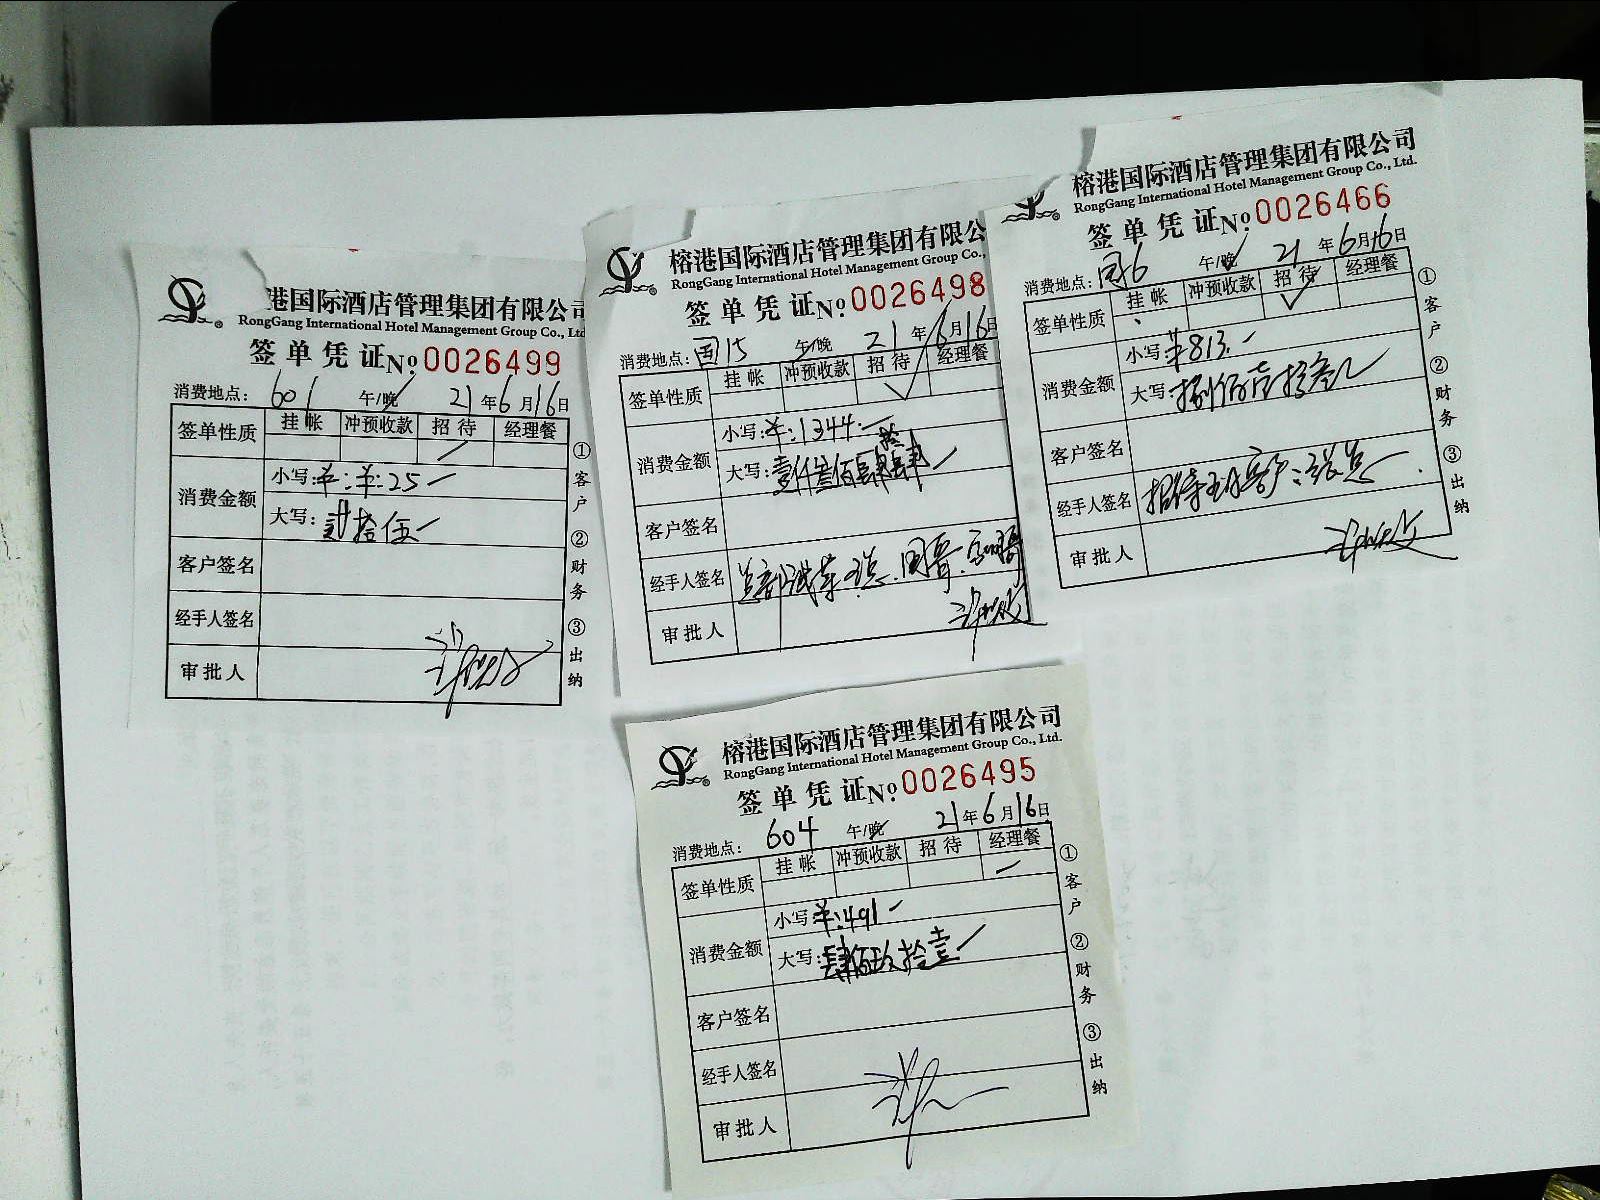 港国际酒店管理集团有限公司
RongGang International Hotel Management Group Co., Ltd
签单凭证No.0026499
消费地点：601 午/晚 21年6月16日
签单性质 挂帐 冲预收款 招待 经理餐
消费金额
小写：¥：¥：25
大写：贰拾伍
客户签名
经手人签名
审批人
①客户 ②财务 ③出纳
榕港国际酒店管理集团有限公
RongGang International Hotel Management Group Co.,
签单凭证No.0026498
消费地点：国15 午/晚 21年6月16日
签单性质 挂帐 冲预收款 招待 经理餐
消费金额
小写：¥：1344
大写：壹仟叁佰肆拾肆
客户签名
经手人签名
审批人
榕港国际酒店管理集团有限公司
RongGang International Hotel Management Group Co., Ltd.
签单凭证No.0026466
消费地点：国6 午/晚 21年6月16日
签单性质 挂帐 冲预收款 招待 经理餐
消费金额
小写 ¥813.
大写：捌佰壹拾叁
客户签名
经手人签名
审批人
①客户 ②财务 ③出纳
榕港国际酒店管理集团有限公司
RongGang International Hotel Management Group Co., Ltd.
签单凭证No.0026495
消费地点：604 午/晚 21年6月16日
签单性质 挂帐 冲预收款 招待 经理餐
消费金额
小写 ¥：491
大写：肆佰玖拾壹
客户签名
经手人签名
审批人
①客户 ②财务 ③出纳